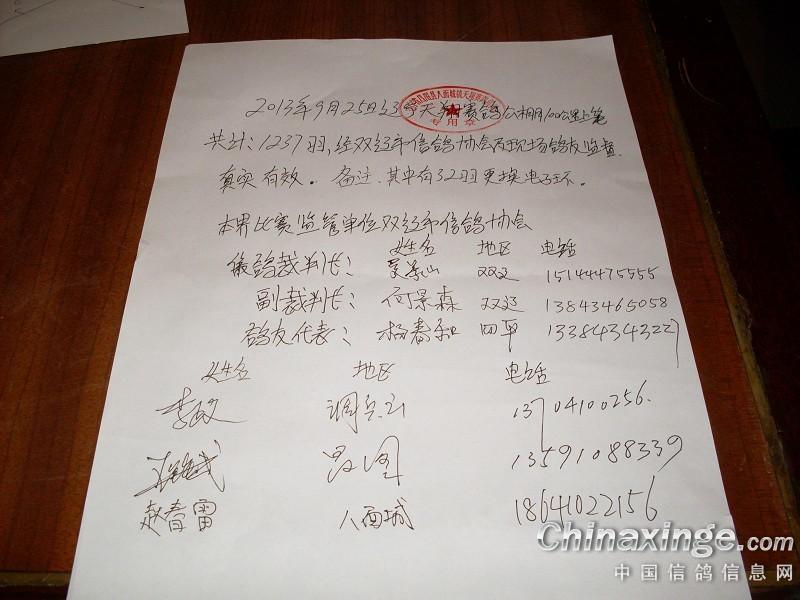 2013年9月25日辽宁天翔赛鸽公棚100公里上笼
昌图县八面城镇天翔
专用章
共计:1237羽,经双辽市信鸽协会及现场鸽友监督.
真实有效。备注.其中有32羽更换电子环。
本界比赛监管单位双辽市信鸽协会
姓名 地区 电话
信鸽裁判长: 双辽 15144475555
副裁判长: 何景森 双辽 13843465058
鸽友代表: 杨春和 四平 13384343227
姓名 地区 电话
李 调兵山 13704100256.
昌图 13591088339
赵春雷 八面城 18641022156
Chinaxinge.com
中国信鸽信息网